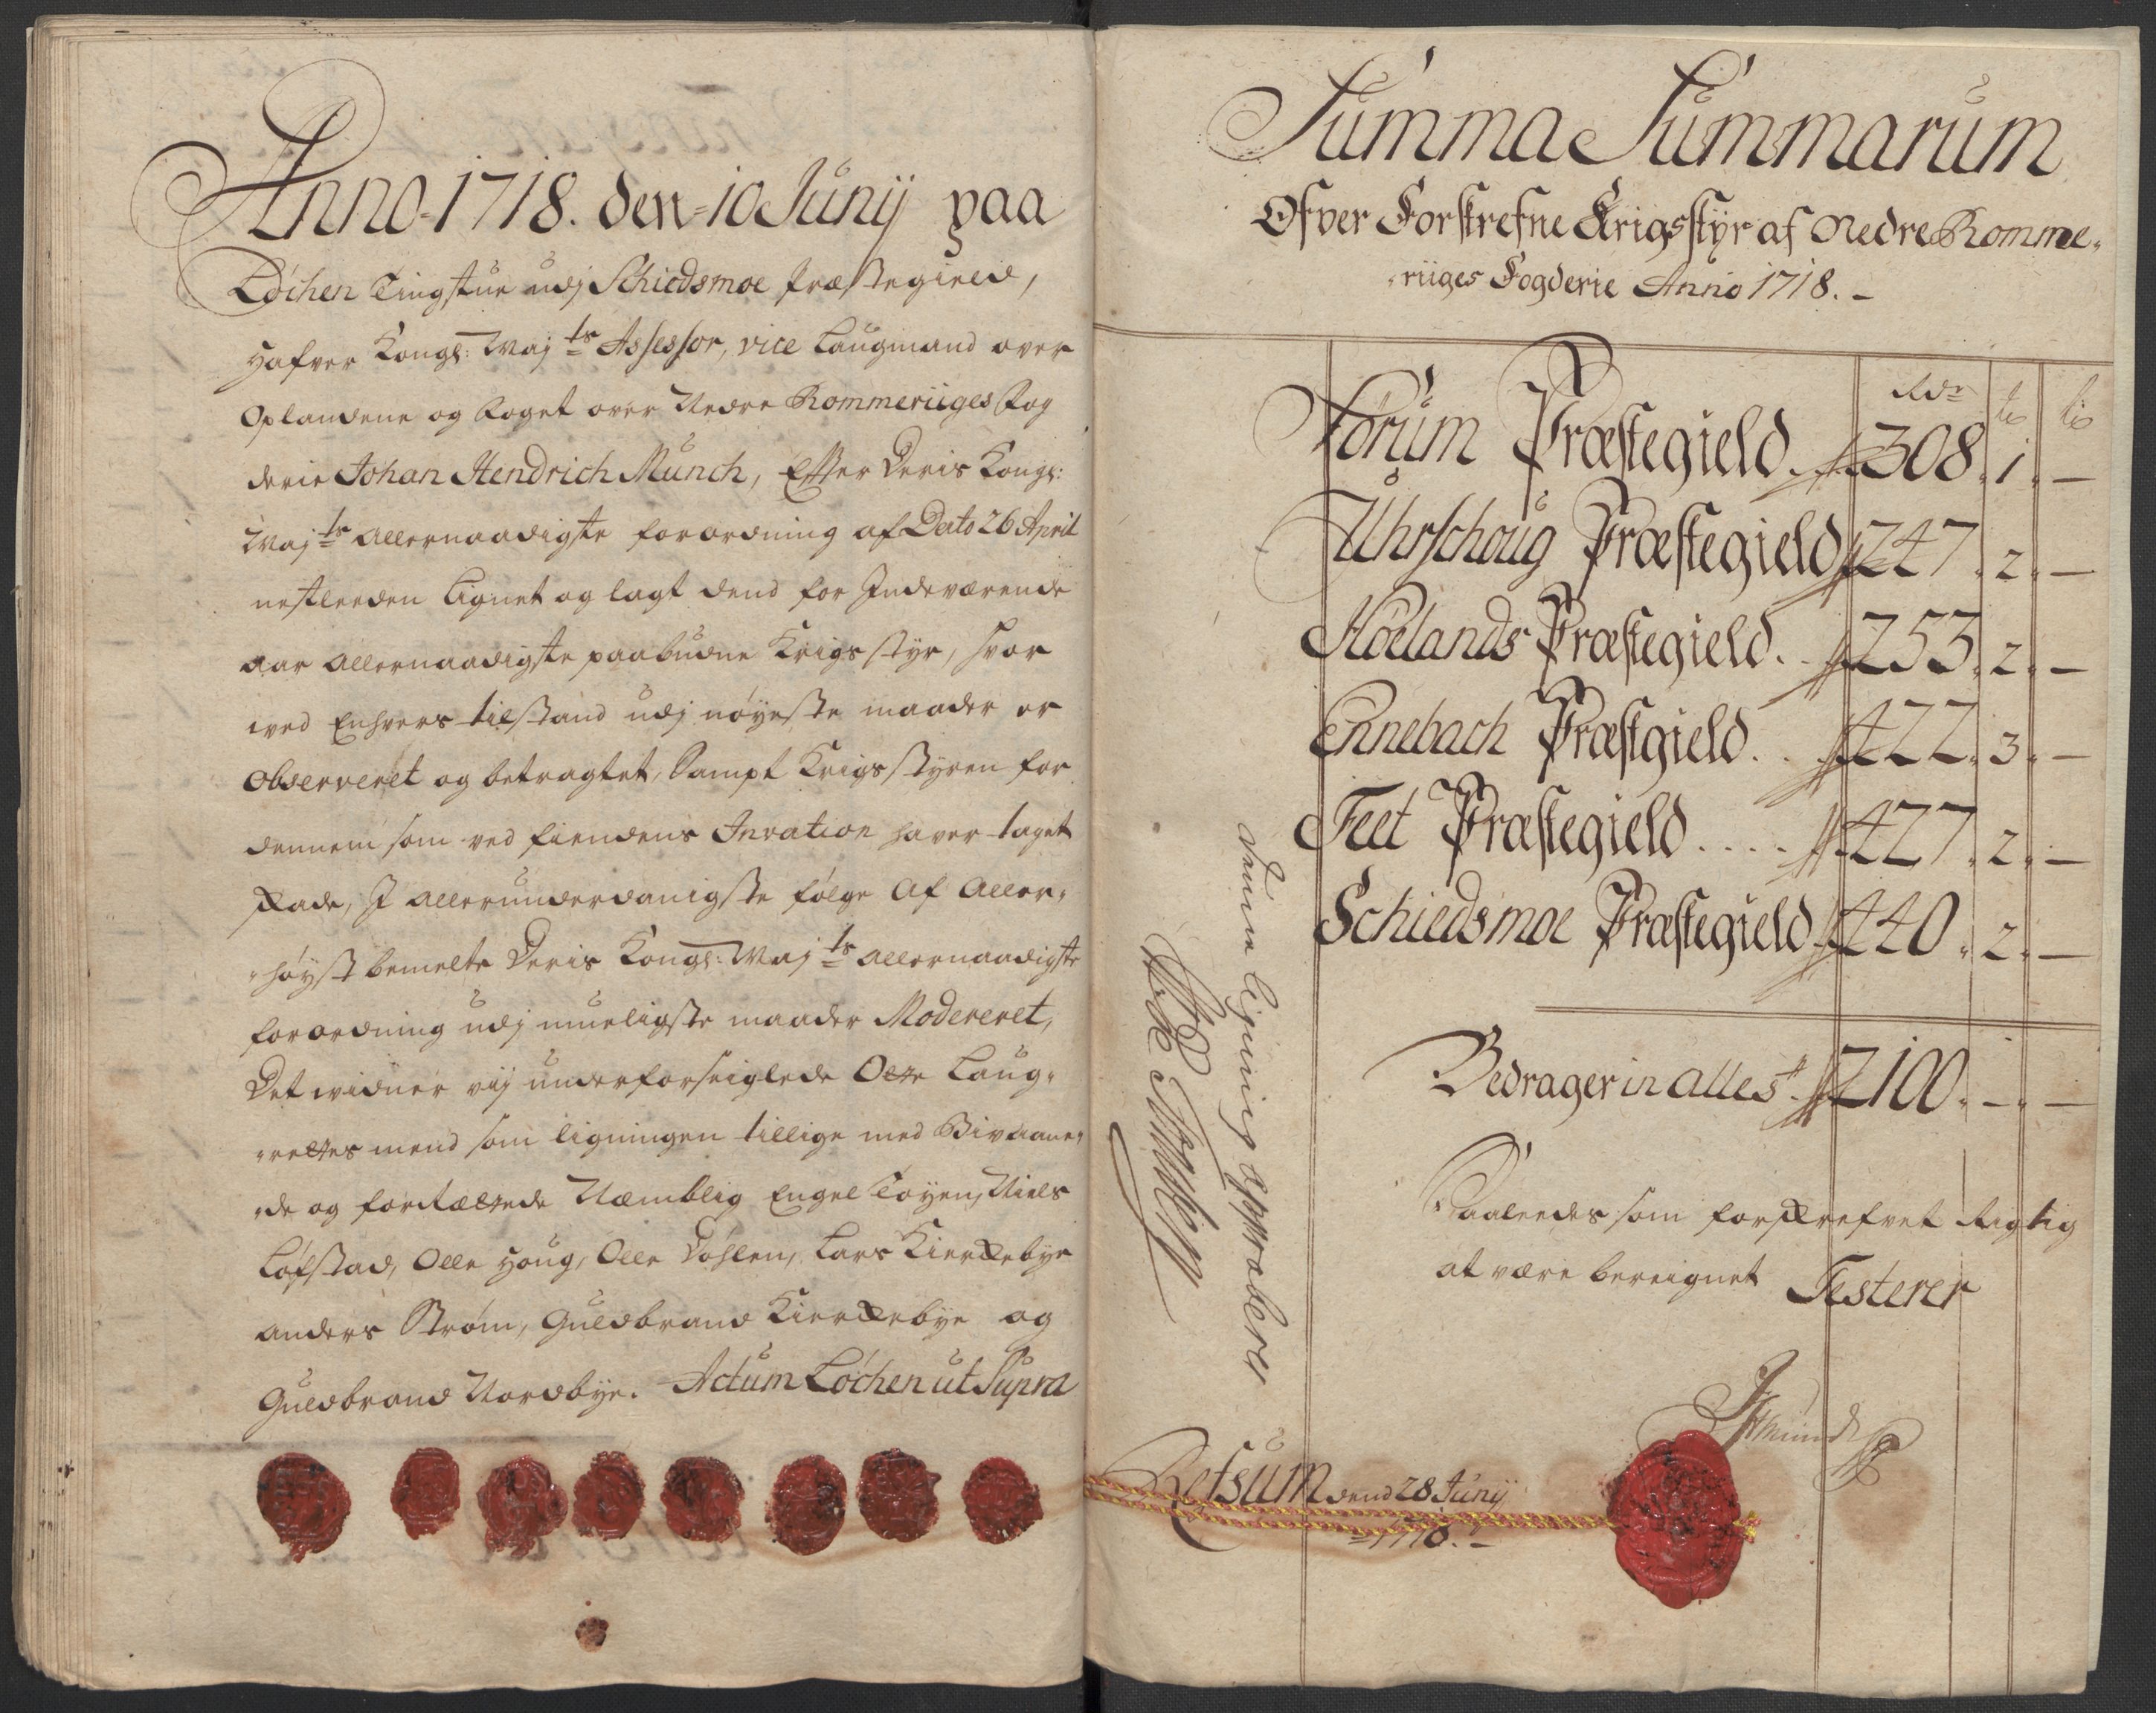 Anno 1718. den 10 Junij paa
Løchen Tingstue udj Schiedsmoe Præstegield,
Hafver Kongl: Maj ts Assessor, vice Laugmand over
Oplandene og Foget over Nedre Rommeriiges Fog
derie Johan Hendrich Munch, Efter Deris Kongl:
Maj ts allernaadigste forordning af Dato 26 April
nestleeden Lignet og lagt dend for Indeværende
aar allernaadigste paabudne Krigsstyr, hvor
ved Enhvers tilstand udj nøyeste maader er
Observeret og betragtet, Sampt Krigsstyren for
dennem som ved fiendens Invation haver taget
skade, I allerunderdanigste følge Af Aller-
høyst bemelte Deris Kongl: Maj ts allernaadigste
forordning udj mueligste maader Modereret,
Det widner vij underforseiglede Otte Laug-
rettes mend som ligningen tillige med Bivaane-
de og forrættede Næmblig Engel Tøyen, Niels
Løfstad, Olle Houg, Olle Døhlen, Lars Kierkebye
Anders Strøm, Guldbrand Kierkebye og
Guldbrand Nordbye. Actum Løchen ut Supra
Summa Summarum
Ofver Forskrefne Krigsstyr af Nedre Romme-
riiges Fogderie Anno 1718.
Rdr
Sørum Præstegield 308. 1. —
Uhrschoug Præstegield 247. 2. —
Høelands Præstegield.. 253. 2. —
Ennebach Præstgield.. 422. 3. —
Feet Præstegield.... 427. 2. —
Schiedsmoe Præstegield 440. 2. —
Bedrager in alles 2100. —. —
Saaleedes som forskrefvet Rigtig
at være bereignet Testerer
JHMunch
Refsum dend 28 Junij
1718.
Denne ligning approberer